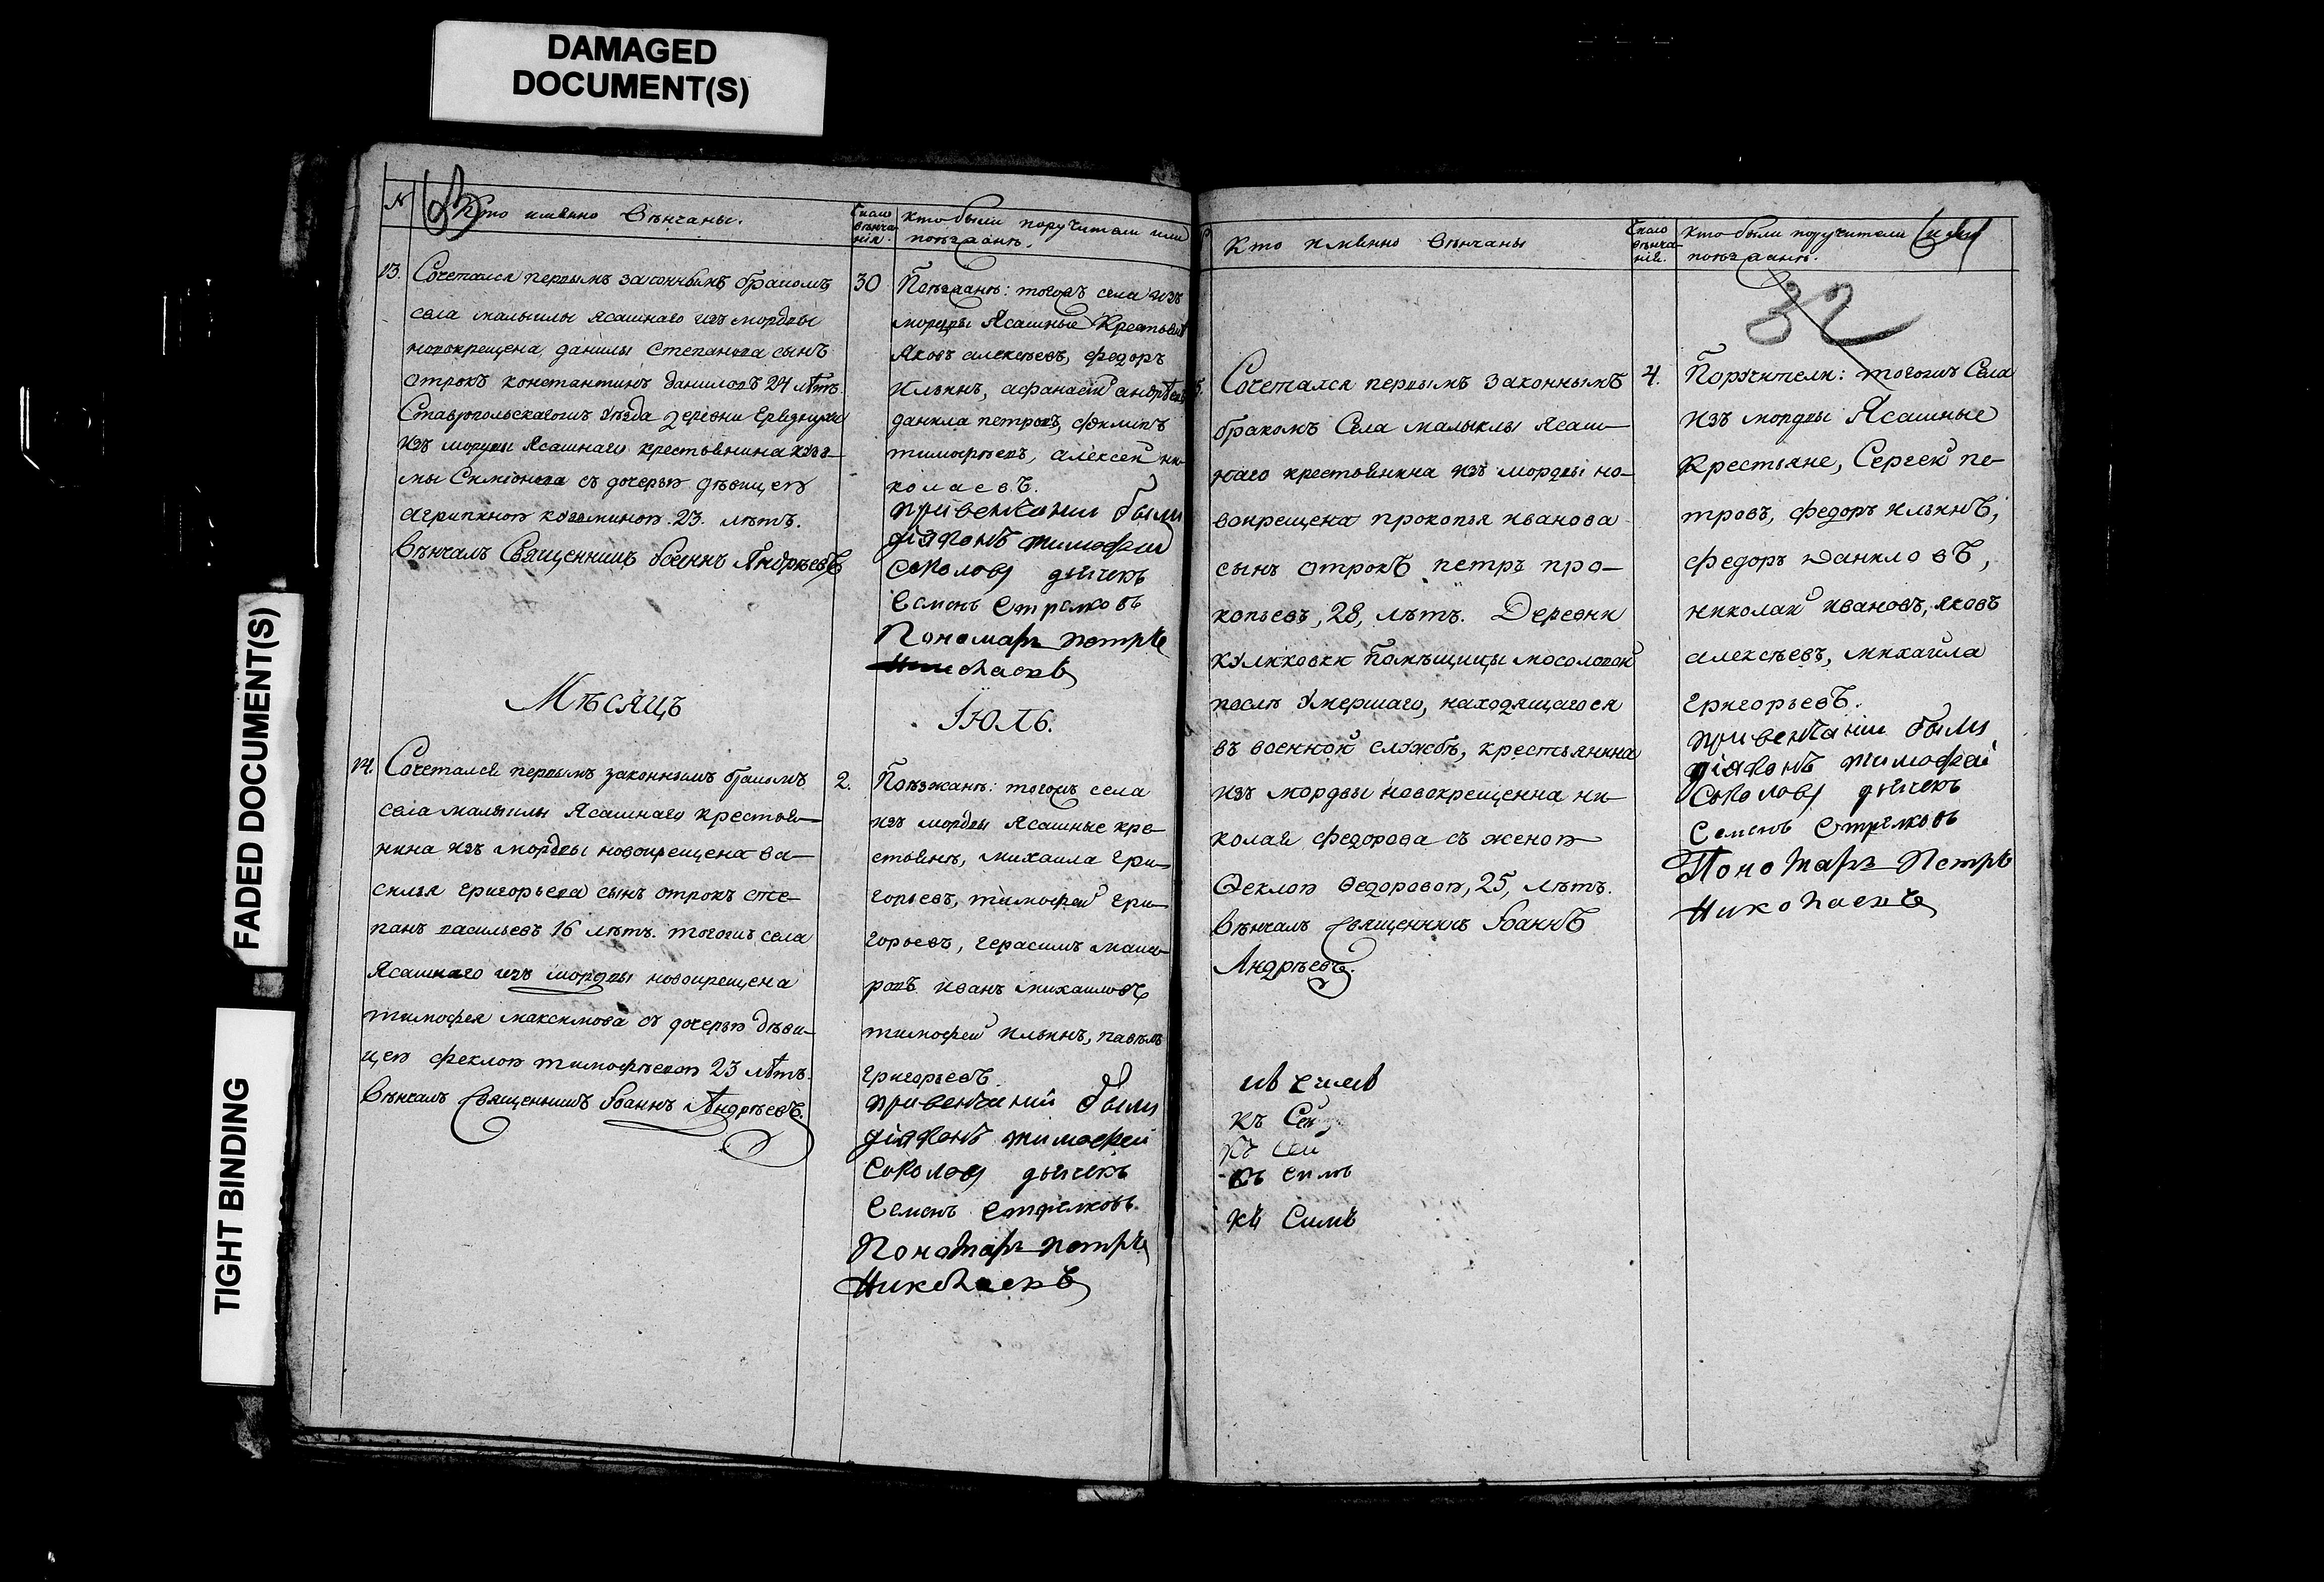 DAMAGED
DOCUMENT(S)
FADED DOCUMENT(S)
TIGHT BINDING
№
Кто имянно Вѣнчаны.
Число
вѣнча-
нія.
кто были поручители или
поѣзжанѣ.
13.
Сочетался первымъ законнымъ бракомъ
села малыклы ясашнаго изъ мордвы
новокрещена данилы Степанова сынъ
отрокъ константинъ даниловъ 24 лѣтъ.
Ставропольскагожъ уѣзда деревни
изъ мордвы Ясашнаго крестьянина кузь-
мы Симіонова съ дочерью дѣвицею
агрипиною козминою. 23. лѣтъ.
Вѣнчалъ Священникъ Іоаннъ Андрѣевъ
30
Поѣзжанѣ: тогожъ села изъ
мордвы Ясашные Крестьянѣ
Яковъ алексѣевъ, федоръ
Ильинъ, афанасей андрѣевъ
данила петровъ, филипъ
тимофѣевъ, алексей ни-
колаевъ.
привенчании были
діяконъ тимофей
Соколовъ дьячекъ
Семенъ Стрелковъ
Пономарь петръ
Николаевъ
Мѣсяцъ
Іюль.
14.
Сочетался первымъ законнымъ бракомъ
села малыклы Ясашнаго крестья-
нина изъ мордвы новокрещена ва-
силья григорьева сынъ отрокъ сте-
панъ васильевъ 16 лѣтъ. тогожъ села
Ясашнаго изъ мордвы новокрещена
тимофея максимова съ дочерью дѣви-
цею феклою тимофѣевою 23 лѣтъ.
Вѣнчалъ Священникъ Іоаннъ Андрѣевъ.
2.
Поѣзжанѣ: тогожъ села
изъ мордвы Ясашные кре-
стьянѣ, михаила гри-
горьевъ, тимофей гри-
горьевъ, герасимъ мака-
ровъ иванъ михаиловъ
тимофей ильинъ, павелъ
григорьевъ.
привенчании были
діяконъ тимофей
Соколовъ дьячекъ
Семенъ Стрелковъ.
Пономарь петръ
Николаевъ
Кто имянно вѣнчаны
Число
вѣнча-
нія.
кто были поручители или
поѣзжанѣ.
32
5.
Сочетался первымъ законнымъ
бракомъ Села малыклы ясаш-
наго крестьянина изъ мордвы но-
вокрещена прокопья иванова
сынъ отрокъ петръ про-
копьевъ, 28, лѣтъ. Деревни
куликовки Помѣщицы мосоловой
послѣ умершаго, находящагося
въ военной службѣ, крестьянина
изъ мордвы новокрещенна ни-
колая федорова съ женою
Феклою Федоровою, 25, лѣтъ.
Вѣнчалъ Священникъ Іоаннъ
Андрѣевъ.
4.
Поручители: тогожъ Села
изъ мордвы Ясашные
Крестьяне, Сергей пе-
тровъ, федоръ ильинъ,
федоръ даниловъ,
николай ивановъ, яковъ
алексѣевъ, михаила
григорьевъ.
привенчании были
діяконъ тимофей
Соколовъ дьячекъ
Семенъ Стрелковъ
Пономарь Петръ
Николаевъ
къ
къ
къ
къ Симъ